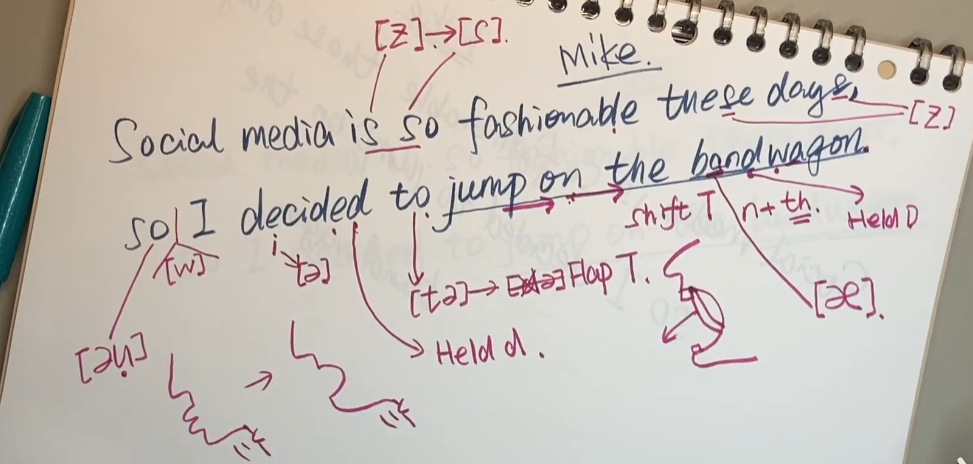 [z]→[s].
Mike.
Social media is so fashionable these days,
[z]
so I decided to jump on the bandwagon.
shift T n+th. Held D
[w] [tə] [tə]→ Flap T. [æ].
[əu] Held d.